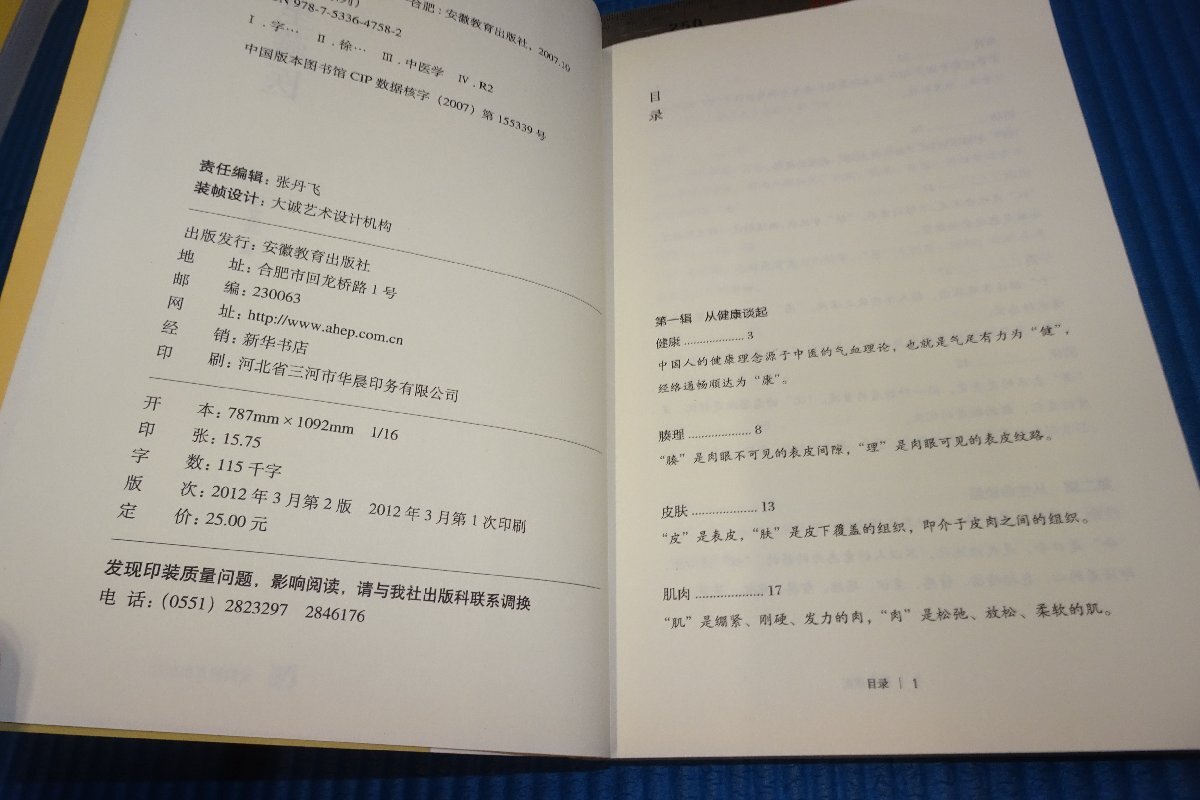 合肥：安徽教育出版社，2007.10
978-7-5336-4758-2
Ⅰ．字… Ⅱ．徐… Ⅲ．中医学 Ⅳ．R2
中国版本图书馆 CIP 数据核字（2007）第 155339 号
责任编辑：张丹飞
装帧设计：大诚艺术设计机构
出版发行：安徽教育出版社
地 址：合肥市回龙桥路 1 号
邮 编：230063
网 址：http://www.ahep.com.cn
经 销：新华书店
印 刷：河北省三河市华晨印务有限公司
开 本：787mm×1092mm 1/16
印 张：15.75
字 数：115 千字
版 次：2012 年 3 月第 2 版 2012 年 3 月第 1 次印刷
定 价：25.00 元
发现印装质量问题，影响阅读，请与我社出版科联系调换
电 话：（0551）2823297 2846176
250
目
录
第一辑 从健康谈起
健康 ................... 3
中国人的健康理念源于中医的气血理论，也就是气足有力为“健”，
经络通畅顺达为“康”。
腠理 ................... 8
“腠”是肉眼不可见的表皮间隙，“理”是肉眼可见的表皮纹路。
皮肤 ................... 13
“皮”是表皮，“肤”是皮下覆盖的组织，即介于皮肉之间的组织。
肌肉 ................... 17
“肌”是绷紧、刚硬、发力的肉，“肉”是松弛、放松、柔软的肌。
目录 | 1